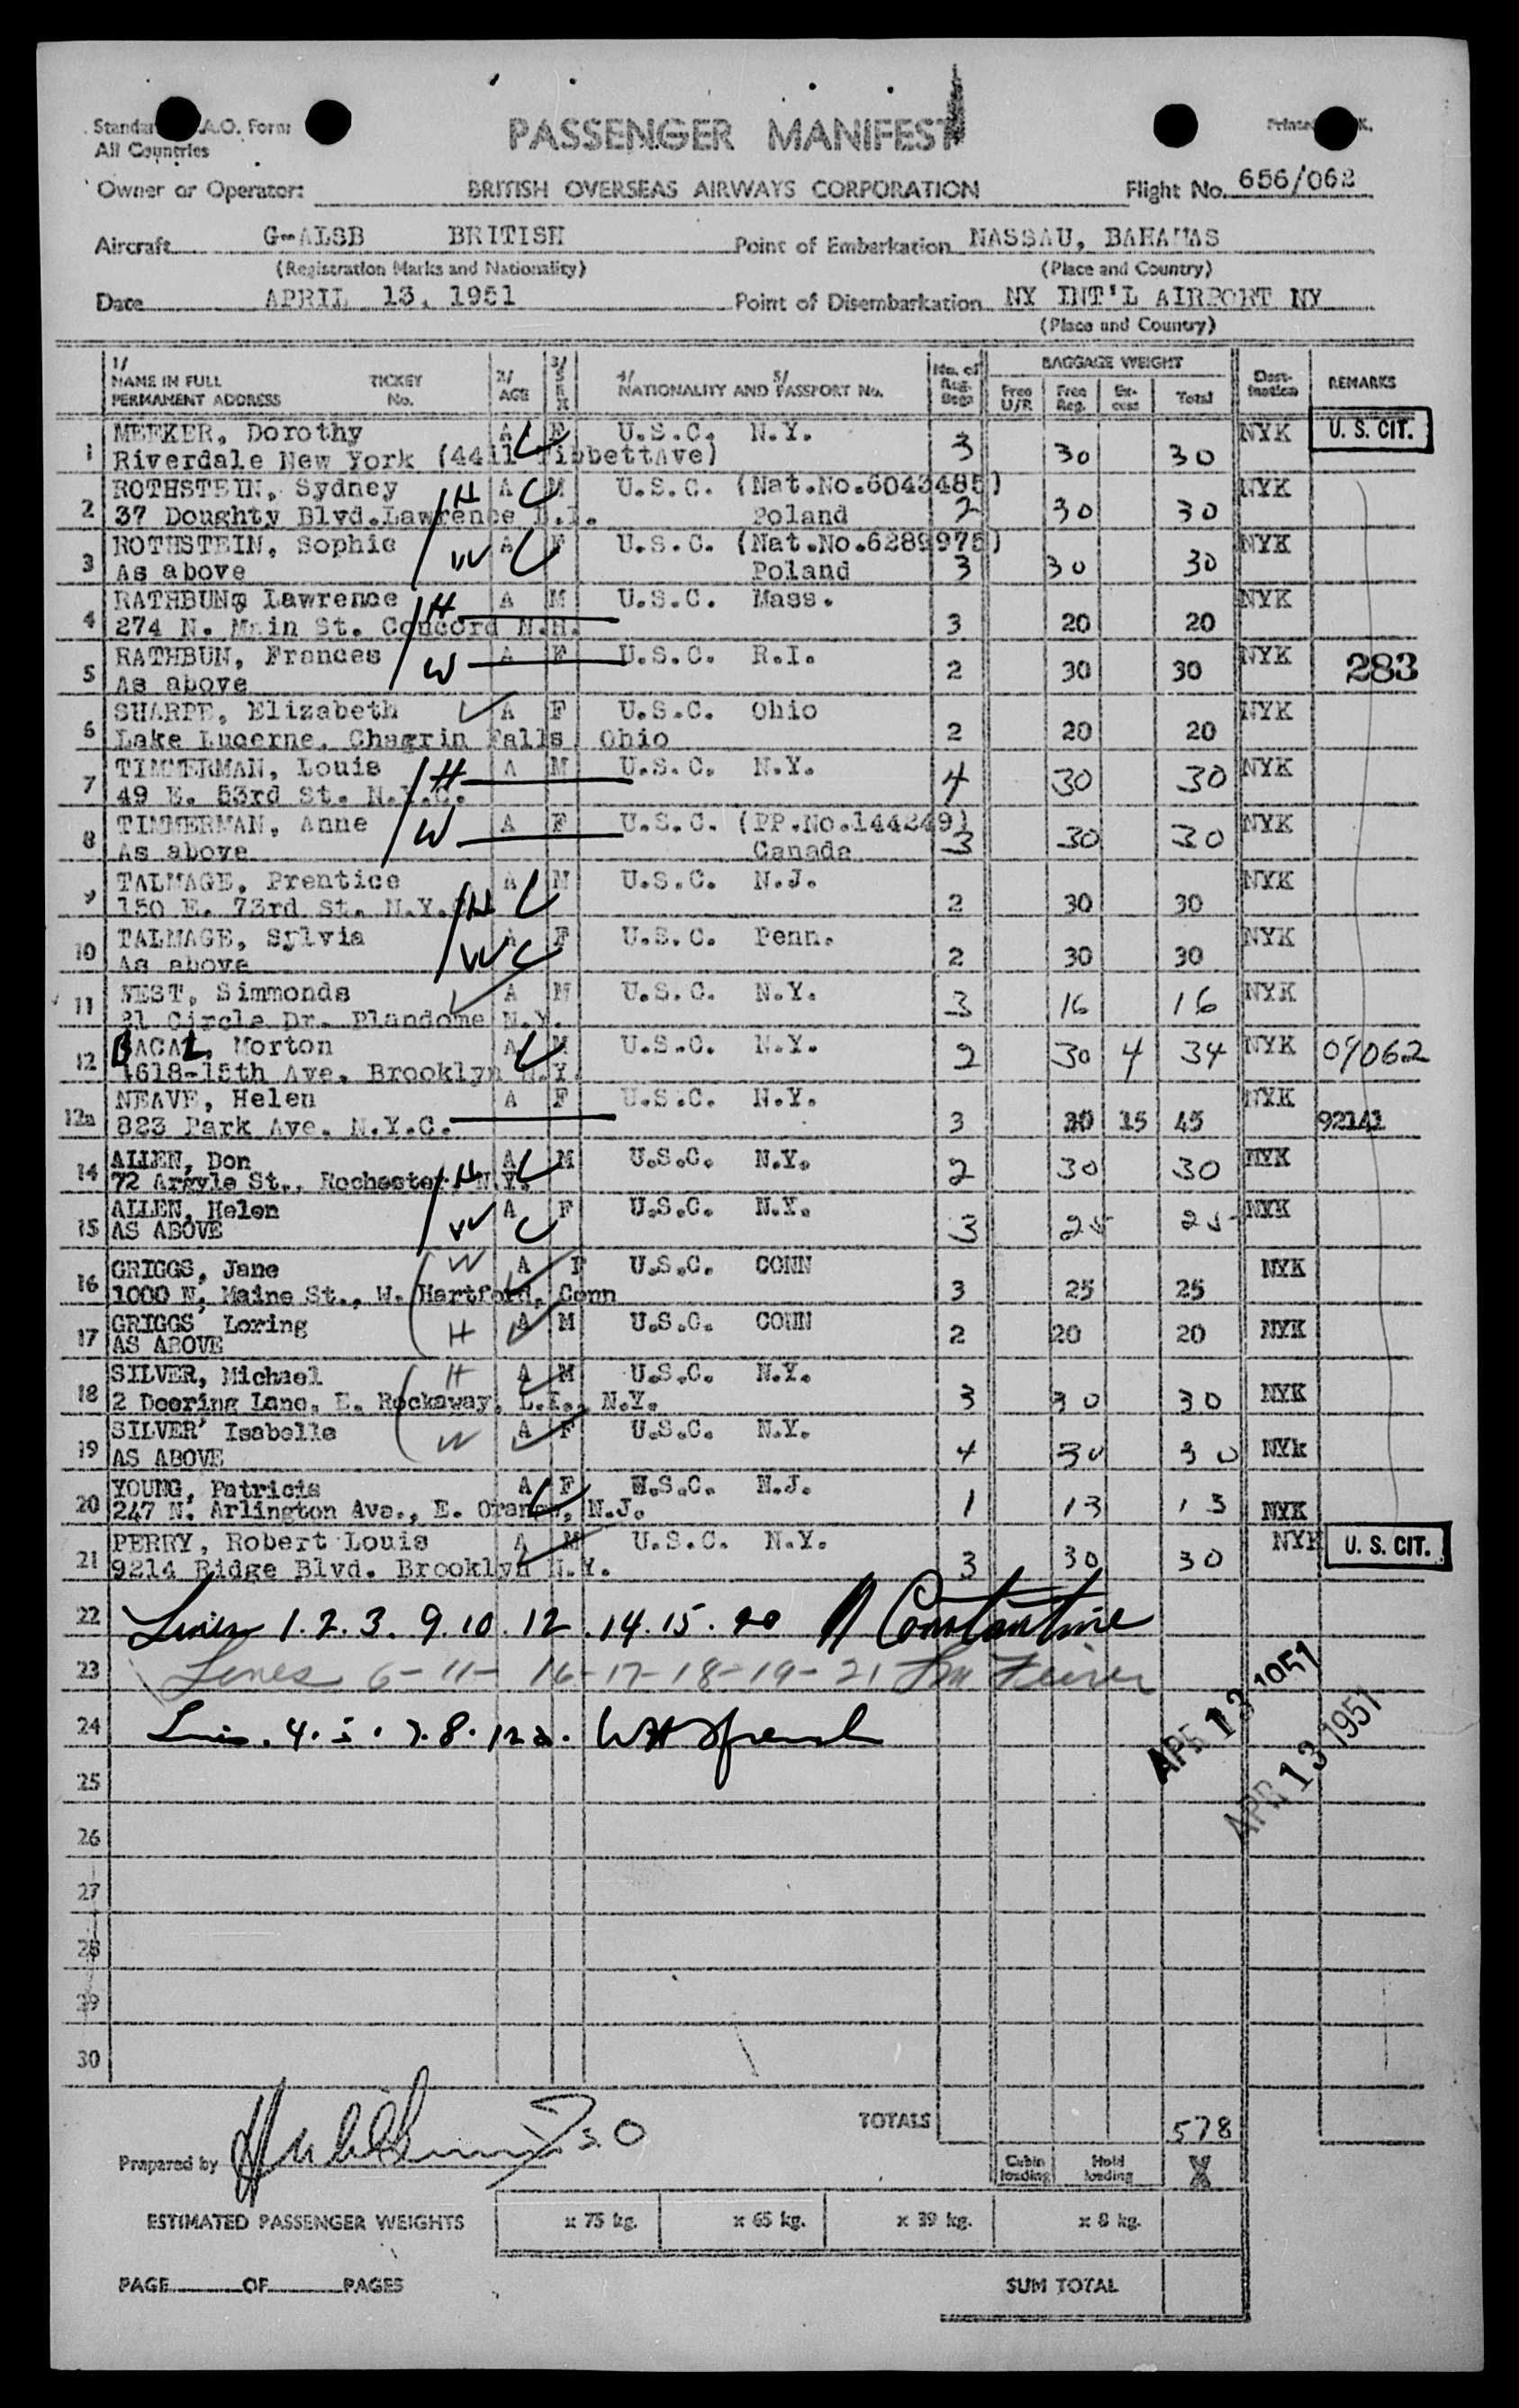 PASSENGER MANIFEST
A.O. Form
All Countries
Owner or Operator: BRITISH OVERSEAS AIRWAYS CORPORATION Flight No. 656/062
Aircraft G-ALSB BRITISH Point of Embarkation NASSAU, BAHAMAS
(Registration Marks and Nationality) (Place and Country)
Date APRIL 13, 1951 Point of Disembarkation NY INT'L AIRPORT NY
(Place and Country)
1/ NAME IN FULL PERMANENT ADDRESS TICKET No. 2/ AGE 3/ SEX 4/ NATIONALITY AND 5/ PASSPORT No. No. of Reg. Bags BAGGAGE WEIGHT Free U/R Free Reg. Ex-cess Total Dest-ination REMARKS
1 MEEKER, Dorothy A F U.S.C. N.Y. 3 30 30 NYK U. S. CIT.
Riverdale New York (4411 TibbettAve)
2 ROTHSTEIN, Sydney H A M U.S.C. (Nat.No.6043485) 2 30 30 NYK
37 Doughty Blvd.Lawrence L.I. Poland
3 ROTHSTEIN, Sophie W A F U.S.C. (Nat.No.6289975) 3 30 30 NYK
As above Poland
4 RATHBUN, Lawrence H A M U.S.C. Mass. 3 20 20 NYK
274 N. Main St. Concord N.H.
5 RATHBUN, Frances W A F U.S.C. R.I. 2 30 30 NYK 283
As above
6 SHARPE, Elizabeth A F U.S.C. Ohio 2 20 20 NYK
Lake Lucerne, Chagrin Falls Ohio
7 TIMMERMAN, Louis H A M U.S.C. N.Y. 4 30 30 NYK
49 E. 53rd St. N.Y.C.
8 TIMMERMAN, Anne W A F U.S.C. (PP.No.144249) 3 30 30 NYK
As above Canada
9 TALMAGE, Prentice H A M U.S.C. N.J. 2 30 30 NYK
150 E. 73rd St. N.Y.
10 TALMAGE, Sylvia W A F U.S.C. Penn. 2 30 30 NYK
As above
11 WEST, Simmonds A M U.S.C. N.Y. 3 16 16 NYK
21 Circle Dr. Plandome N.Y.
12 BACAL, Morton A M U.S.C. N.Y. 2 30 4 34 NYK 09062
4618-15th Ave. Brooklyn N.Y.
12a NEAVE, Helen A F U.S.C. N.Y. 3 30 15 45 NYK 92141
823 Park Ave. N.Y.C.
14 ALLEN, Don H A M U.S.C. N.Y. 2 30 30 NYK
72 Argyle St., Rochester N.Y.
15 ALLEN, Helen W A F U.S.C. N.Y. 3 25 25 NYK
AS ABOVE
16 GRIGGS, Jane W A F U.S.C. CONN 3 25 25 NYK
1000 N. Maine St., W. Hartford, Conn
17 GRIGGS Loring H A M U.S.C. CONN 2 20 20 NYK
AS ABOVE
18 SILVER, Michael H A M U.S.C. N.Y. 3 30 30 NYK
2 Deering Lane, E. Rockaway, L.I., N.Y.
19 SILVER' Isabelle W A F U.S.C. N.Y. 4 30 30 NYk
AS ABOVE
20 YOUNG, Patricia A F U.S.C. N.J. 1 13 13 NYK
247 N. Arlington Ave., E. Orange, N.J.
21 PERRY, Robert Louis A M U.S.C. N.Y. 3 30 30 NYK U. S. CIT.
9214 Ridge Blvd. Brooklyn N.Y.
22 Lines 1.2.3. 9.10.12.14.15.20 Constantine
23 Lines 6-11-16-17-18-19-21
24 4.5.7.8.12a.
APR 13 1951
APR 13 1951
25
26
27
28
29
30
TOTALS 578
Prepared by
Cabin loading Hold loading X
ESTIMATED PASSENGER WEIGHTS x 75 kg. x 65 kg. x 39 kg. x 8 kg.
PAGE OF PAGES SUM TOTAL